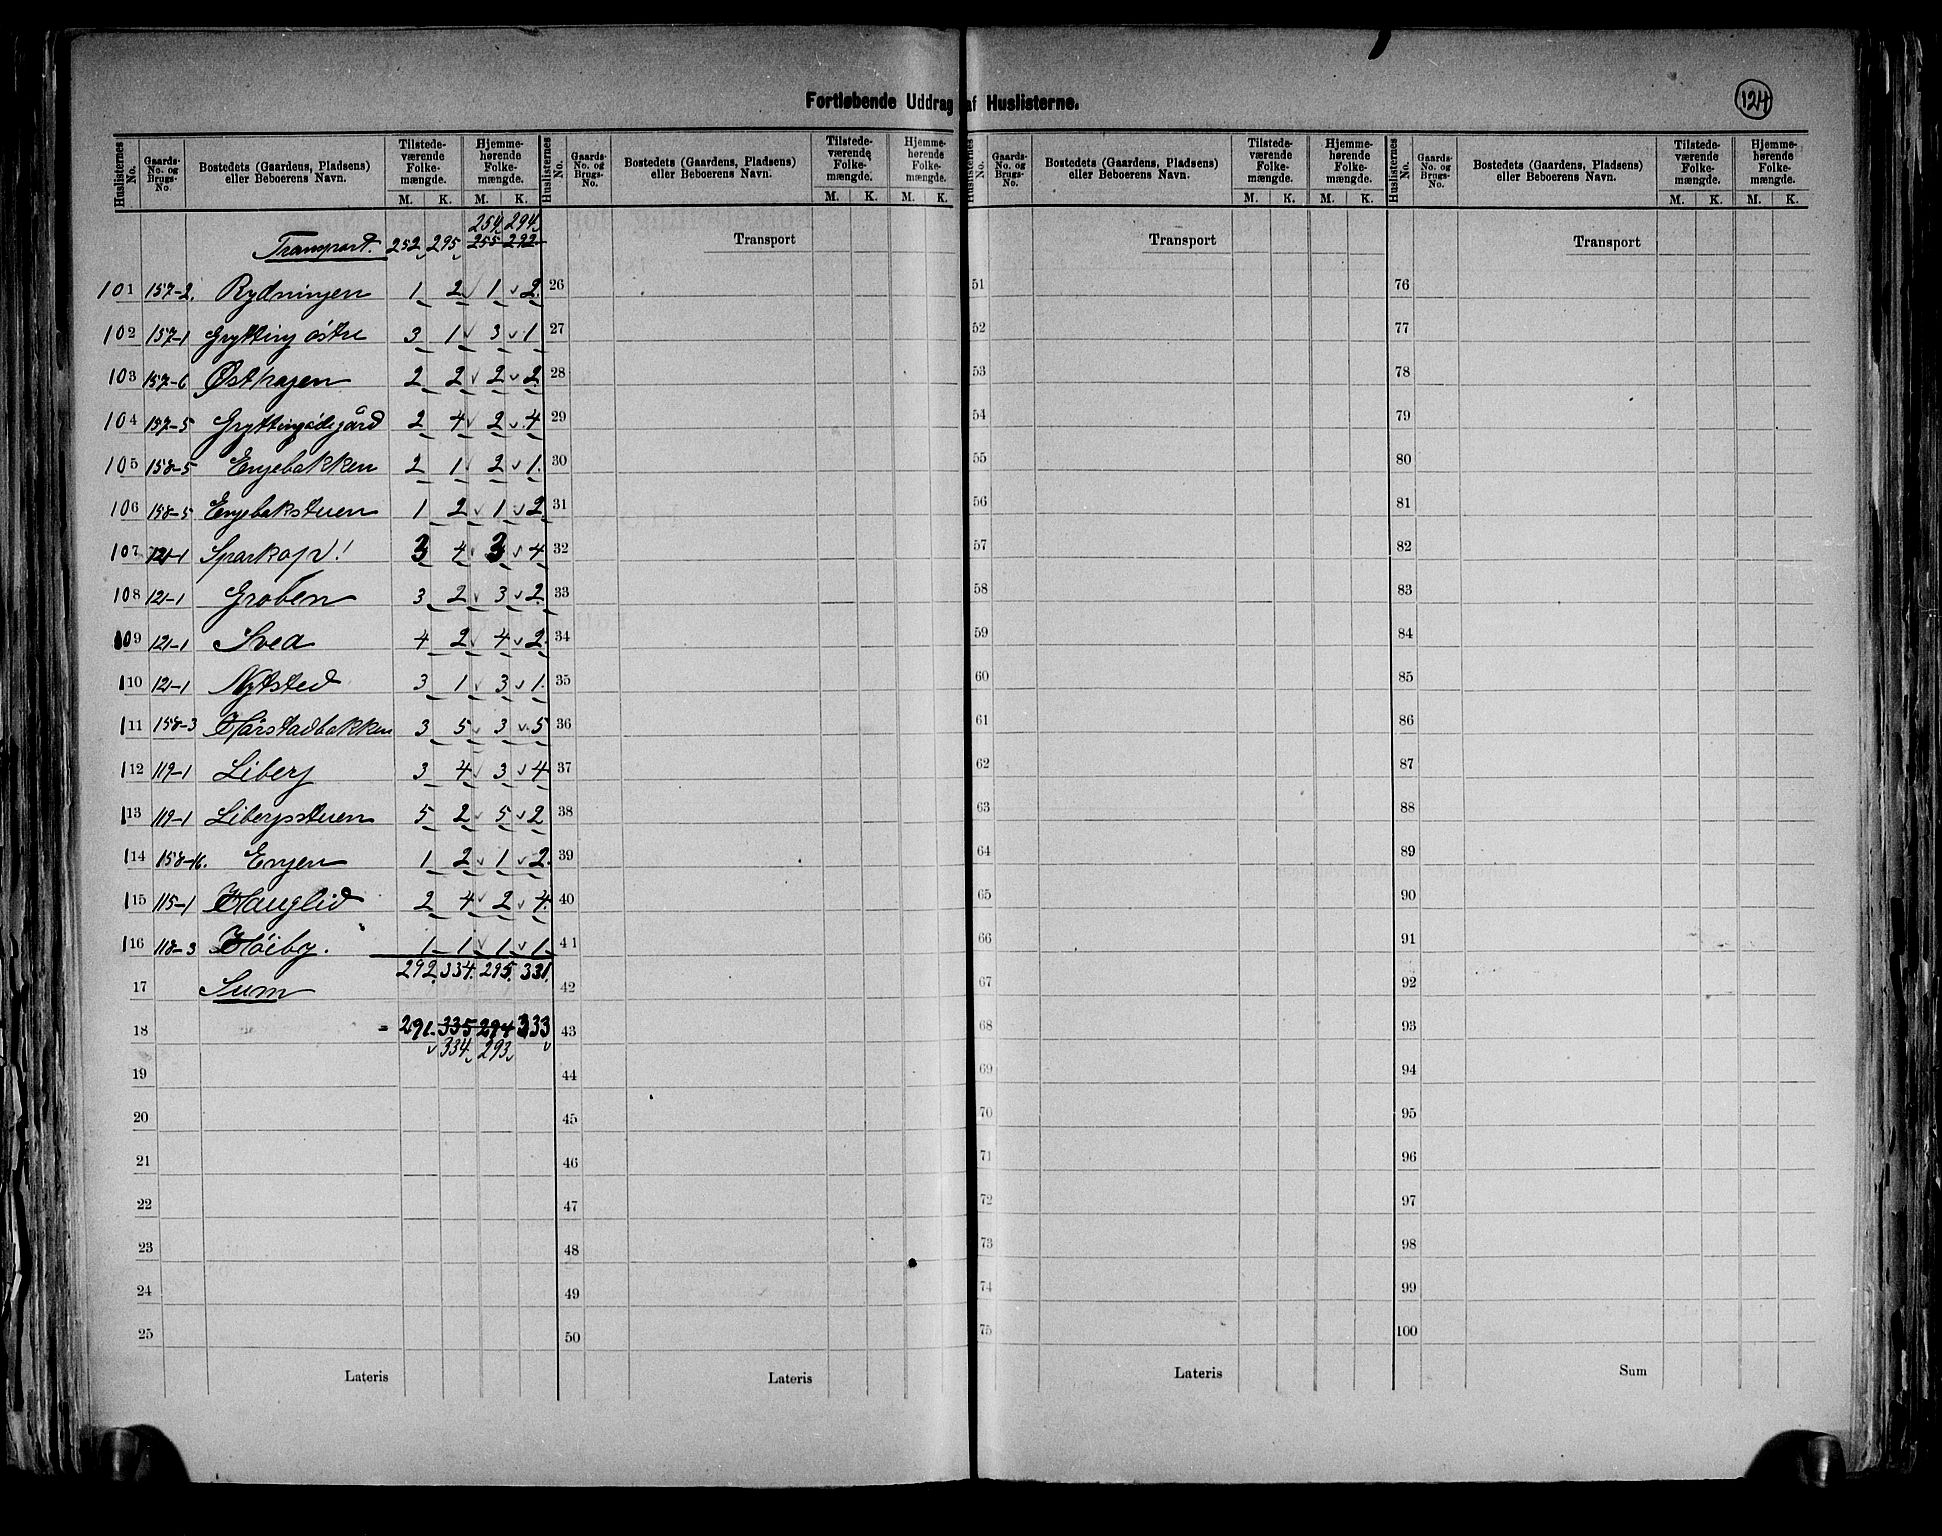 Fortløbende Uddrag af Huslisterne.
124
Huslisternes No. Gaards-No. og Brugs-No. Bostedets (Gaardens, Pladsens) eller Beboerens Navn. Tilstedeværende Folkemængde. M. K. Hjemmehørende Folkemængde. M. K.
Huslisternes No. Gaards-No. og Brugs-No. Bostedets (Gaardens, Pladsens) eller Beboerens Navn. Tilstedeværende Folkemængde. M. K. Hjemmehørende Folkemængde. M. K.
Huslisternes No. Gaards-No. og Brugs-No. Bostedets (Gaardens, Pladsens) eller Beboerens Navn. Tilstedeværende Folkemængde. M. K. Hjemmehørende Folkemængde. M. K.
Huslisternes No. Gaards-No. og Brugs-No. Bostedets (Gaardens, Pladsens) eller Beboerens Navn. Tilstedeværende Folkemængde. M. K. Hjemmehørende Folkemængde. M. K.
254 294
Transport. 252 295 255 292 Transport Transport Transport
101 157-2. Rydningen 1 2 1 2 26 51 76
102 157-1 Grytting østre 3 1 3 1 27 52 77
103 157-6 Østhagen 2 2 2 2 28 53 78
104 157-5 Gryttingødegård 2 4 2 4 29 54 79
105 158-5 Engebakken 2 1 2 1 30 55 80
106 158-5 Engebakstuen 1 2 1 2 31 56 81
107 121-1 3 4 3 4 32 57 82
108 121-1 Groben 3 2 3 2 33 58 83
109 121-1 Svea 4 2 4 2 34 59 84
110 121-1 Nytsted 3 1 3 1 35 60 85
111 158-3 Hårstadbakken 3 5 3 5 36 61 86
112 119-1 Liberg 3 4 3 4 37 62 87
113 119-1 Libergsstuen 5 2 5 2 38 63 88
114 158-16. Engen 1 2 1 2 39 64 89
115 115-1 Hauglid 2 4 2 4 40 65 90
116 118-3 Høiby. 1 1 1 1 41 66 91
292 334 295 331
17 Sum 42 67 92
18 = 291 335 294 333 43 68 93
334 293
19 44 69 94
20 45 70 95
21 46 71 96
22 47 72 97
23 48 73 98
24 49 74 99
25 50 75 100
Lateris Lateris Lateris Sum